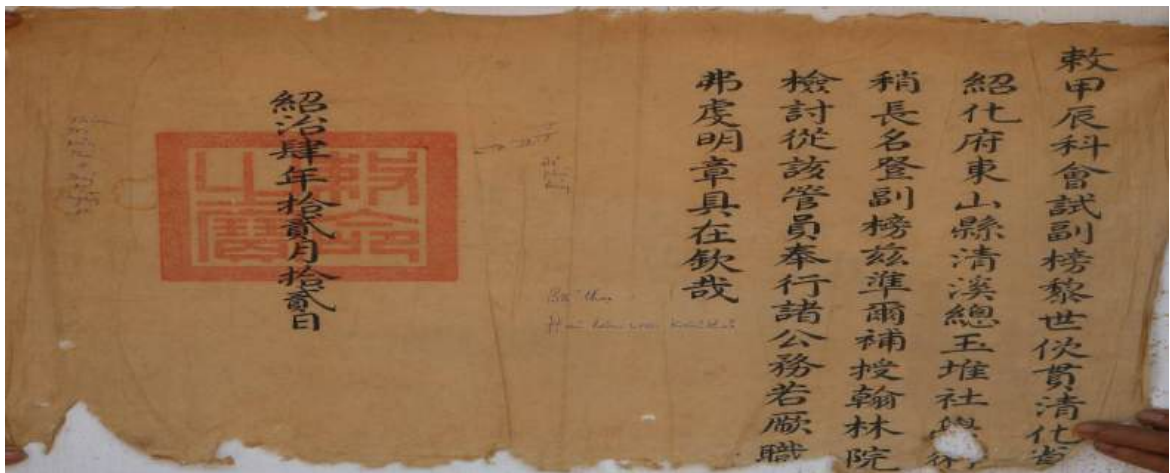 敕甲辰科會試副榜黎世佽貫清化省
紹化府東山縣清溪總玉堆社學術
稍長名登副榜兹準爾補授翰林院
檢討從該管員奉行諸公務若厥職
弗虔明章具在欽哉
紹治肆年拾貳月拾貳日
敕命之寶